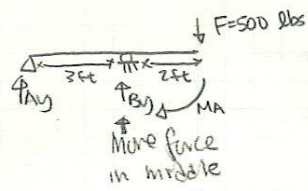 F=500 lbs
3ft 2ft
Ay By MA
More force
in middle